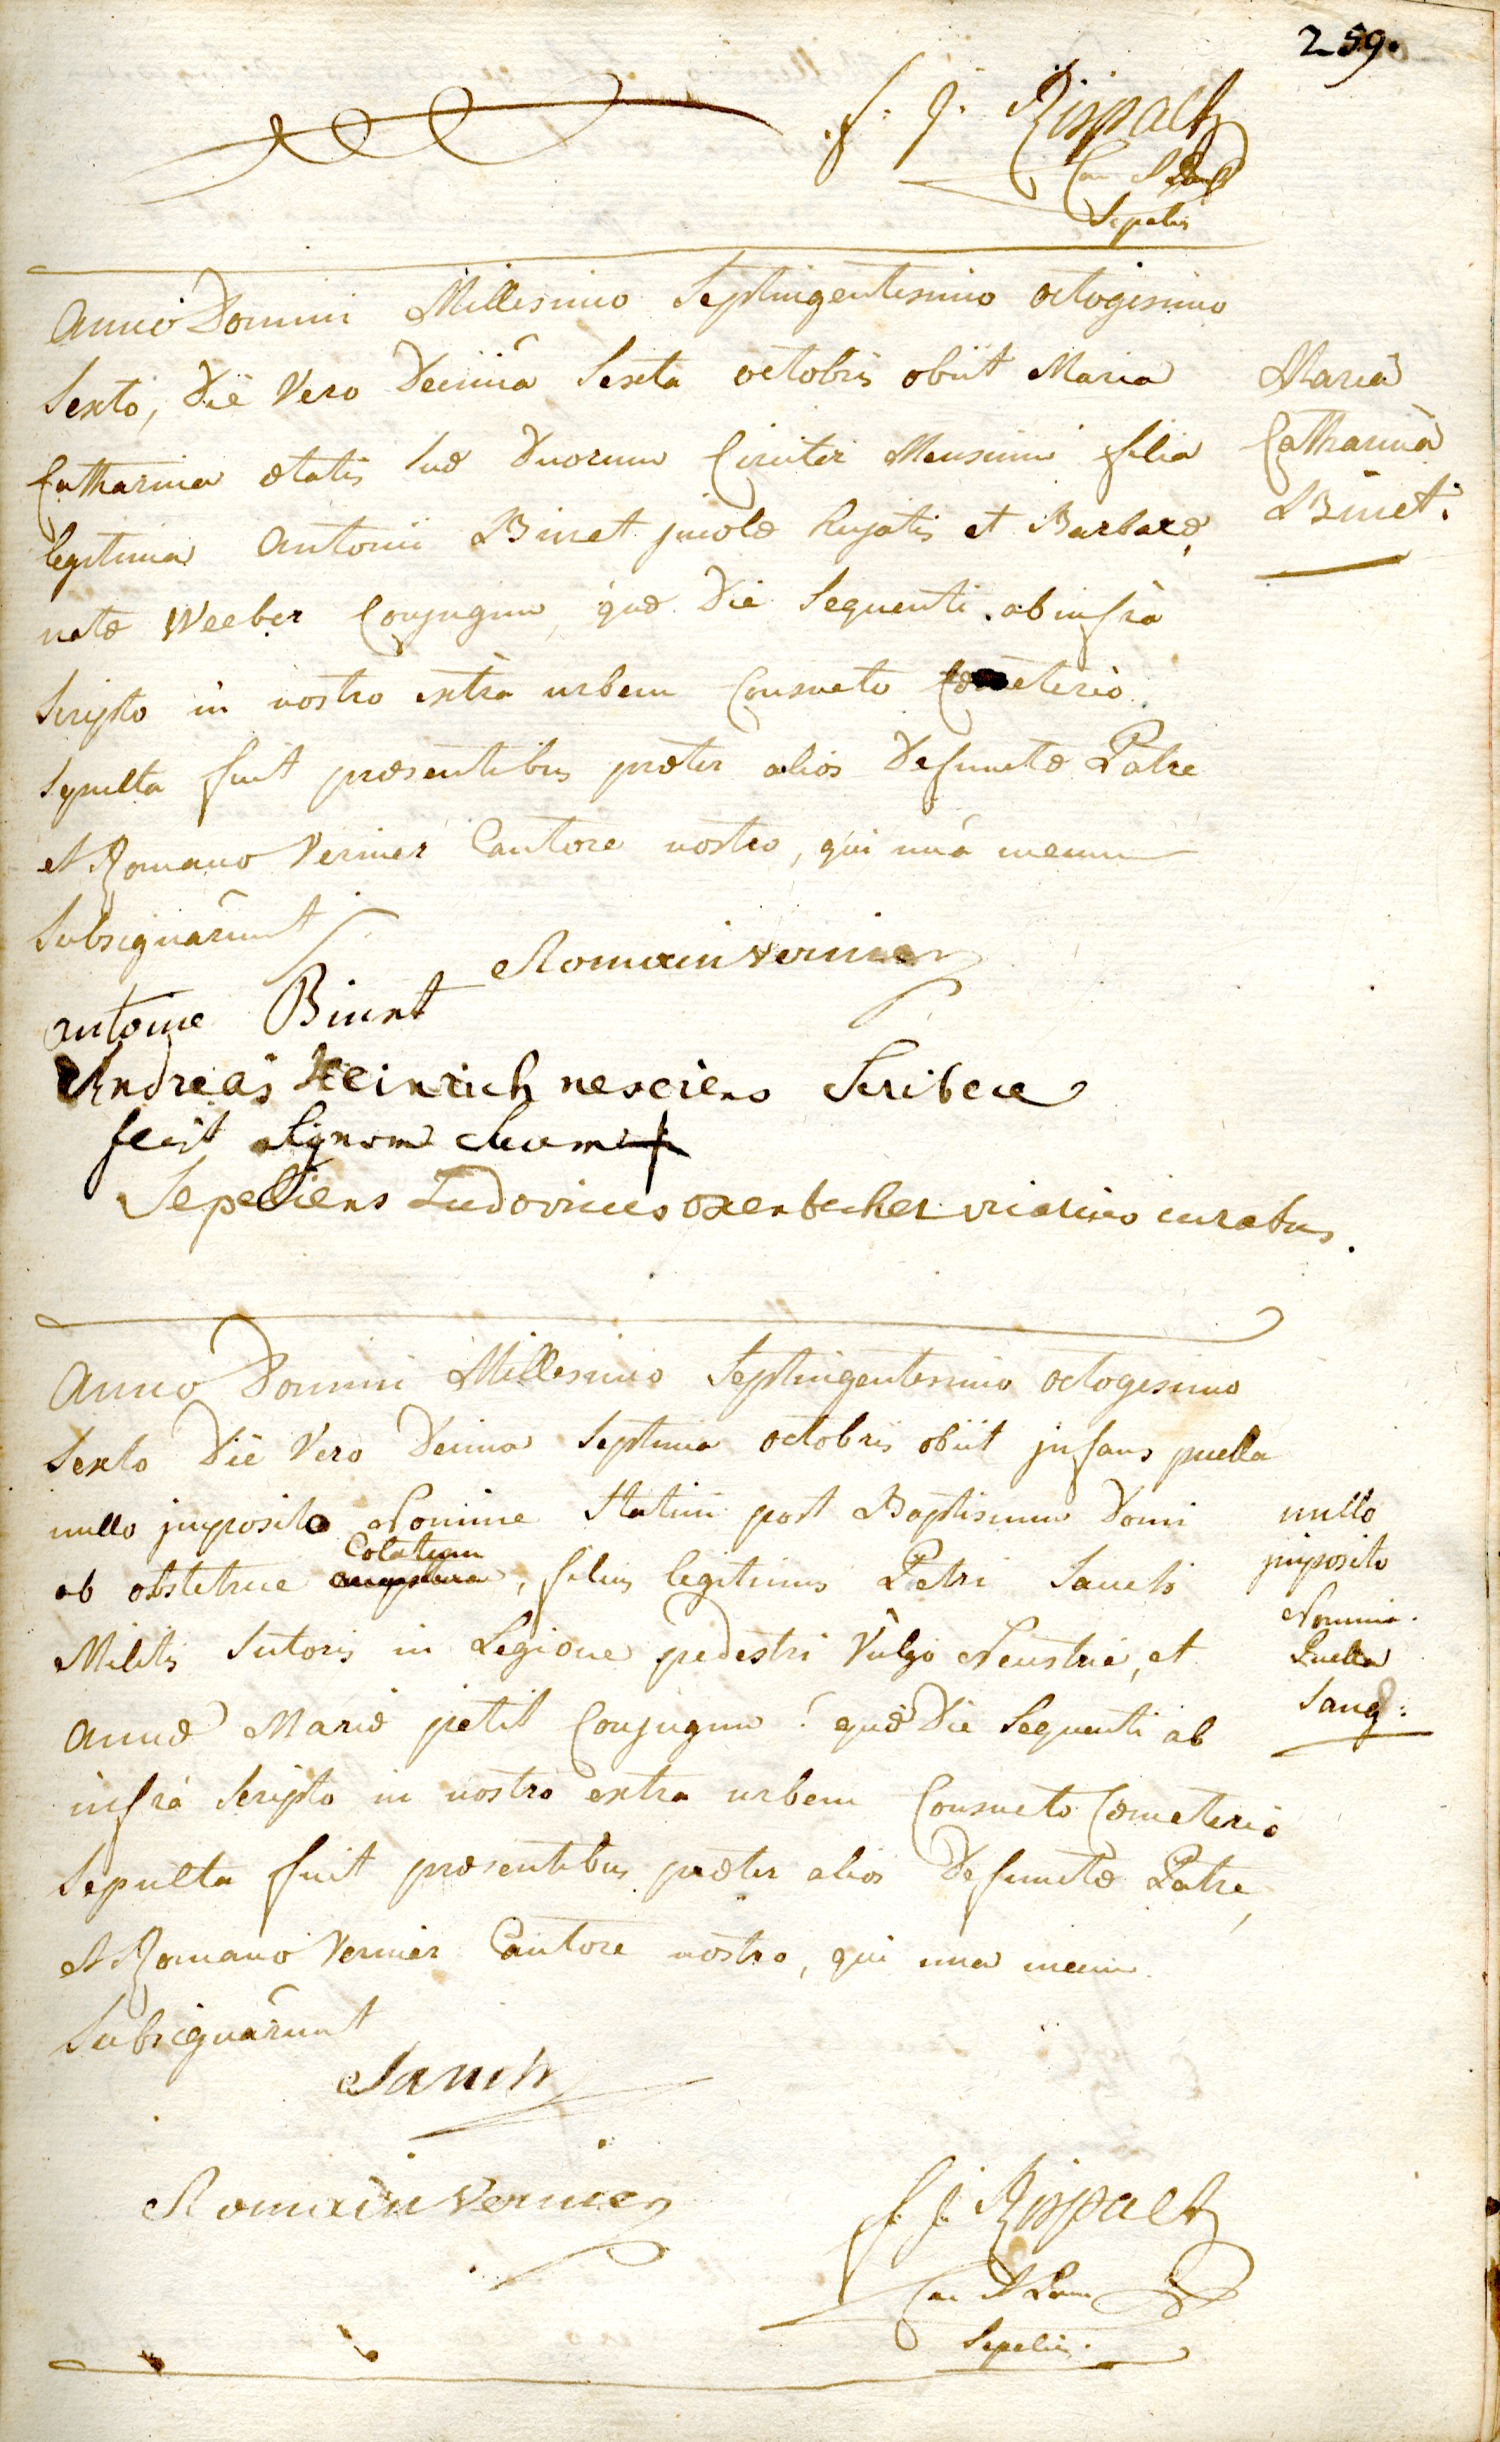 259.
f. j. Rispalt
Can
Sepeliens
Anno Domini Millesimo Septingentesimo octogesimo
Sexto, die Vero Decimâ Sexta octobris obiit Maria
Catharina ætatis suæ duorum Circiter Mensium filia
legitima Antonii Binet jncolæ hujatis et Barbaræ
natæ Weeber Conjugum, quæ die Sequenti ab infrà
Scripto in nostro extrà urbem Consueto Cœmeterio
Sepulta fuit præsentibus præter alios defunctæ Patre
et Romano Vernier Cantore nostro, qui unà mecum
Subsignârunt
Maria
Catharina
Binet.
Romain vernier
antoine Binet
Andreas Heinrich nesciens Scribere
fecit Signom Suum +
Sepeliens Ludovicus oxenbecher vicarius curatus.
Anno Domini Millesimo Septingentesimo octogesimo
Sexto Die Vero Decima Septima octobris obiit jnfans puella
nullo jmposito Nomine Statim post Baptismum Domi
Colatum
ab obstetrice , filius legitimus Petri Sanch
Militis Sutoris in Legione pedestri Vulgò Neustrie, et
Annæ Mariæ petit Conjugum: quæ Die Sequenti ab
infrà Scripto in nostro extra urbem Consueto Cœmeterio
Sepulta fuit præsentibus præter alios Defunctæ Patre,
et Romano Vernier Cantore nostro, qui una mecum
Subsignârunt
nullo
jmposito
Nomine.
Puella
Sanch
Romain vernier
f. j. Rispalt
Can
Sepeliens